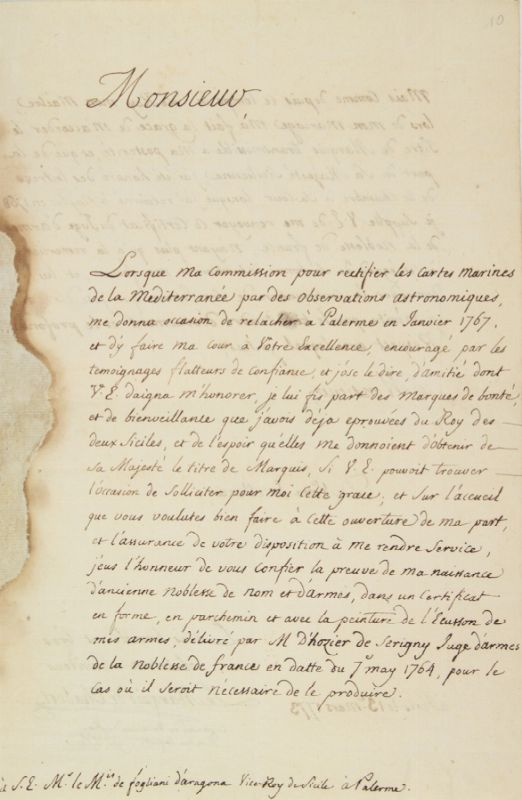 10
Monsieur
Lorsque ma commission pour rectifier les cartes marines
de la Mediterranée par des observations astronomiques,
me donna occasion de relacher à Palerme en Janvier 1767.
et d'y faire ma cour à Votre Excellence, encouragé par les
temoignages flatteurs de confiance, et j'ose le dire, d'amitié dont
V. E. daigna m'honorer, je lui fis part des marques de bonté,
et de bienveillance que j'avois déja eprouvées du Roy des
deux Siciles, et de l'espoir qu'elles me donnoient d'obtenir de
Sa Majesté le titre de Marquis, si V. E. pouvoit trouver
l'occasion de solliciter pour moi cette grace, et sur l'accueil
que vous voulutes bien faire à cette ouverture de ma part,
et l'assurance de votre disposition à me rendre service,
j'eus l'honneur de vous confier la preuve de ma naissance
d'ancienne noblesse de nom et d'armes, dans un certificat
en forme, en parchemin et avec la peinture de l'Ecusson de
mes armes, délivré par M D'hozier de Serigny Juge d'armes
de la noblesse de france en datte du 7e may 1764, pour le
cas où il seroit nécessaire de le produire.
à S. E. Mr. le Mis. de fogliani d'aragona Vice-Roy de Sicile à Palerme.